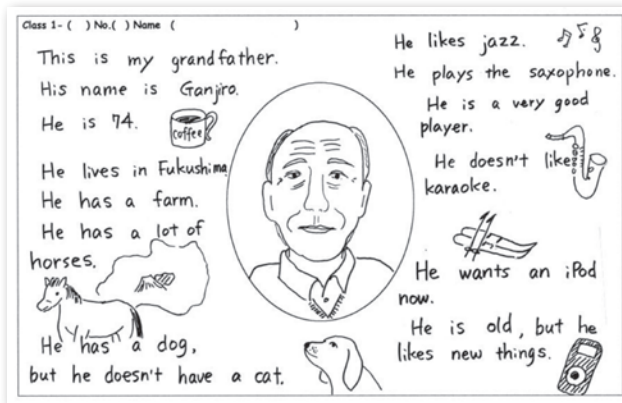 Class 1- ( ) No.( ) Name ( )
This is my grandfather.
His name is Ganjiro.
He is 74.
coffee
He lives in Fukushima.
He has a farm.
He has a lot of
horses.
He has a dog,
but he doesn't have a cat.
He likes jazz.
He plays the saxophone.
He is a very good
player.
He doesn't like
karaoke.
He wants an iPod
now.
He is old, but he
likes new things.